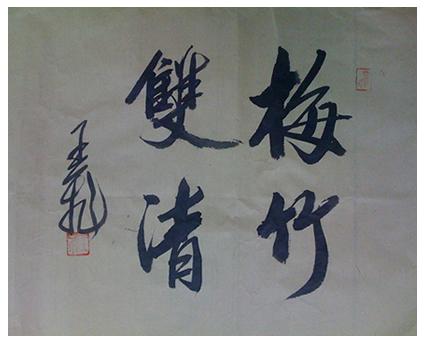 梅竹
雙清